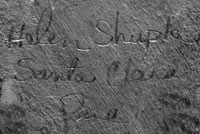 Helen Shupla
Santa Clara